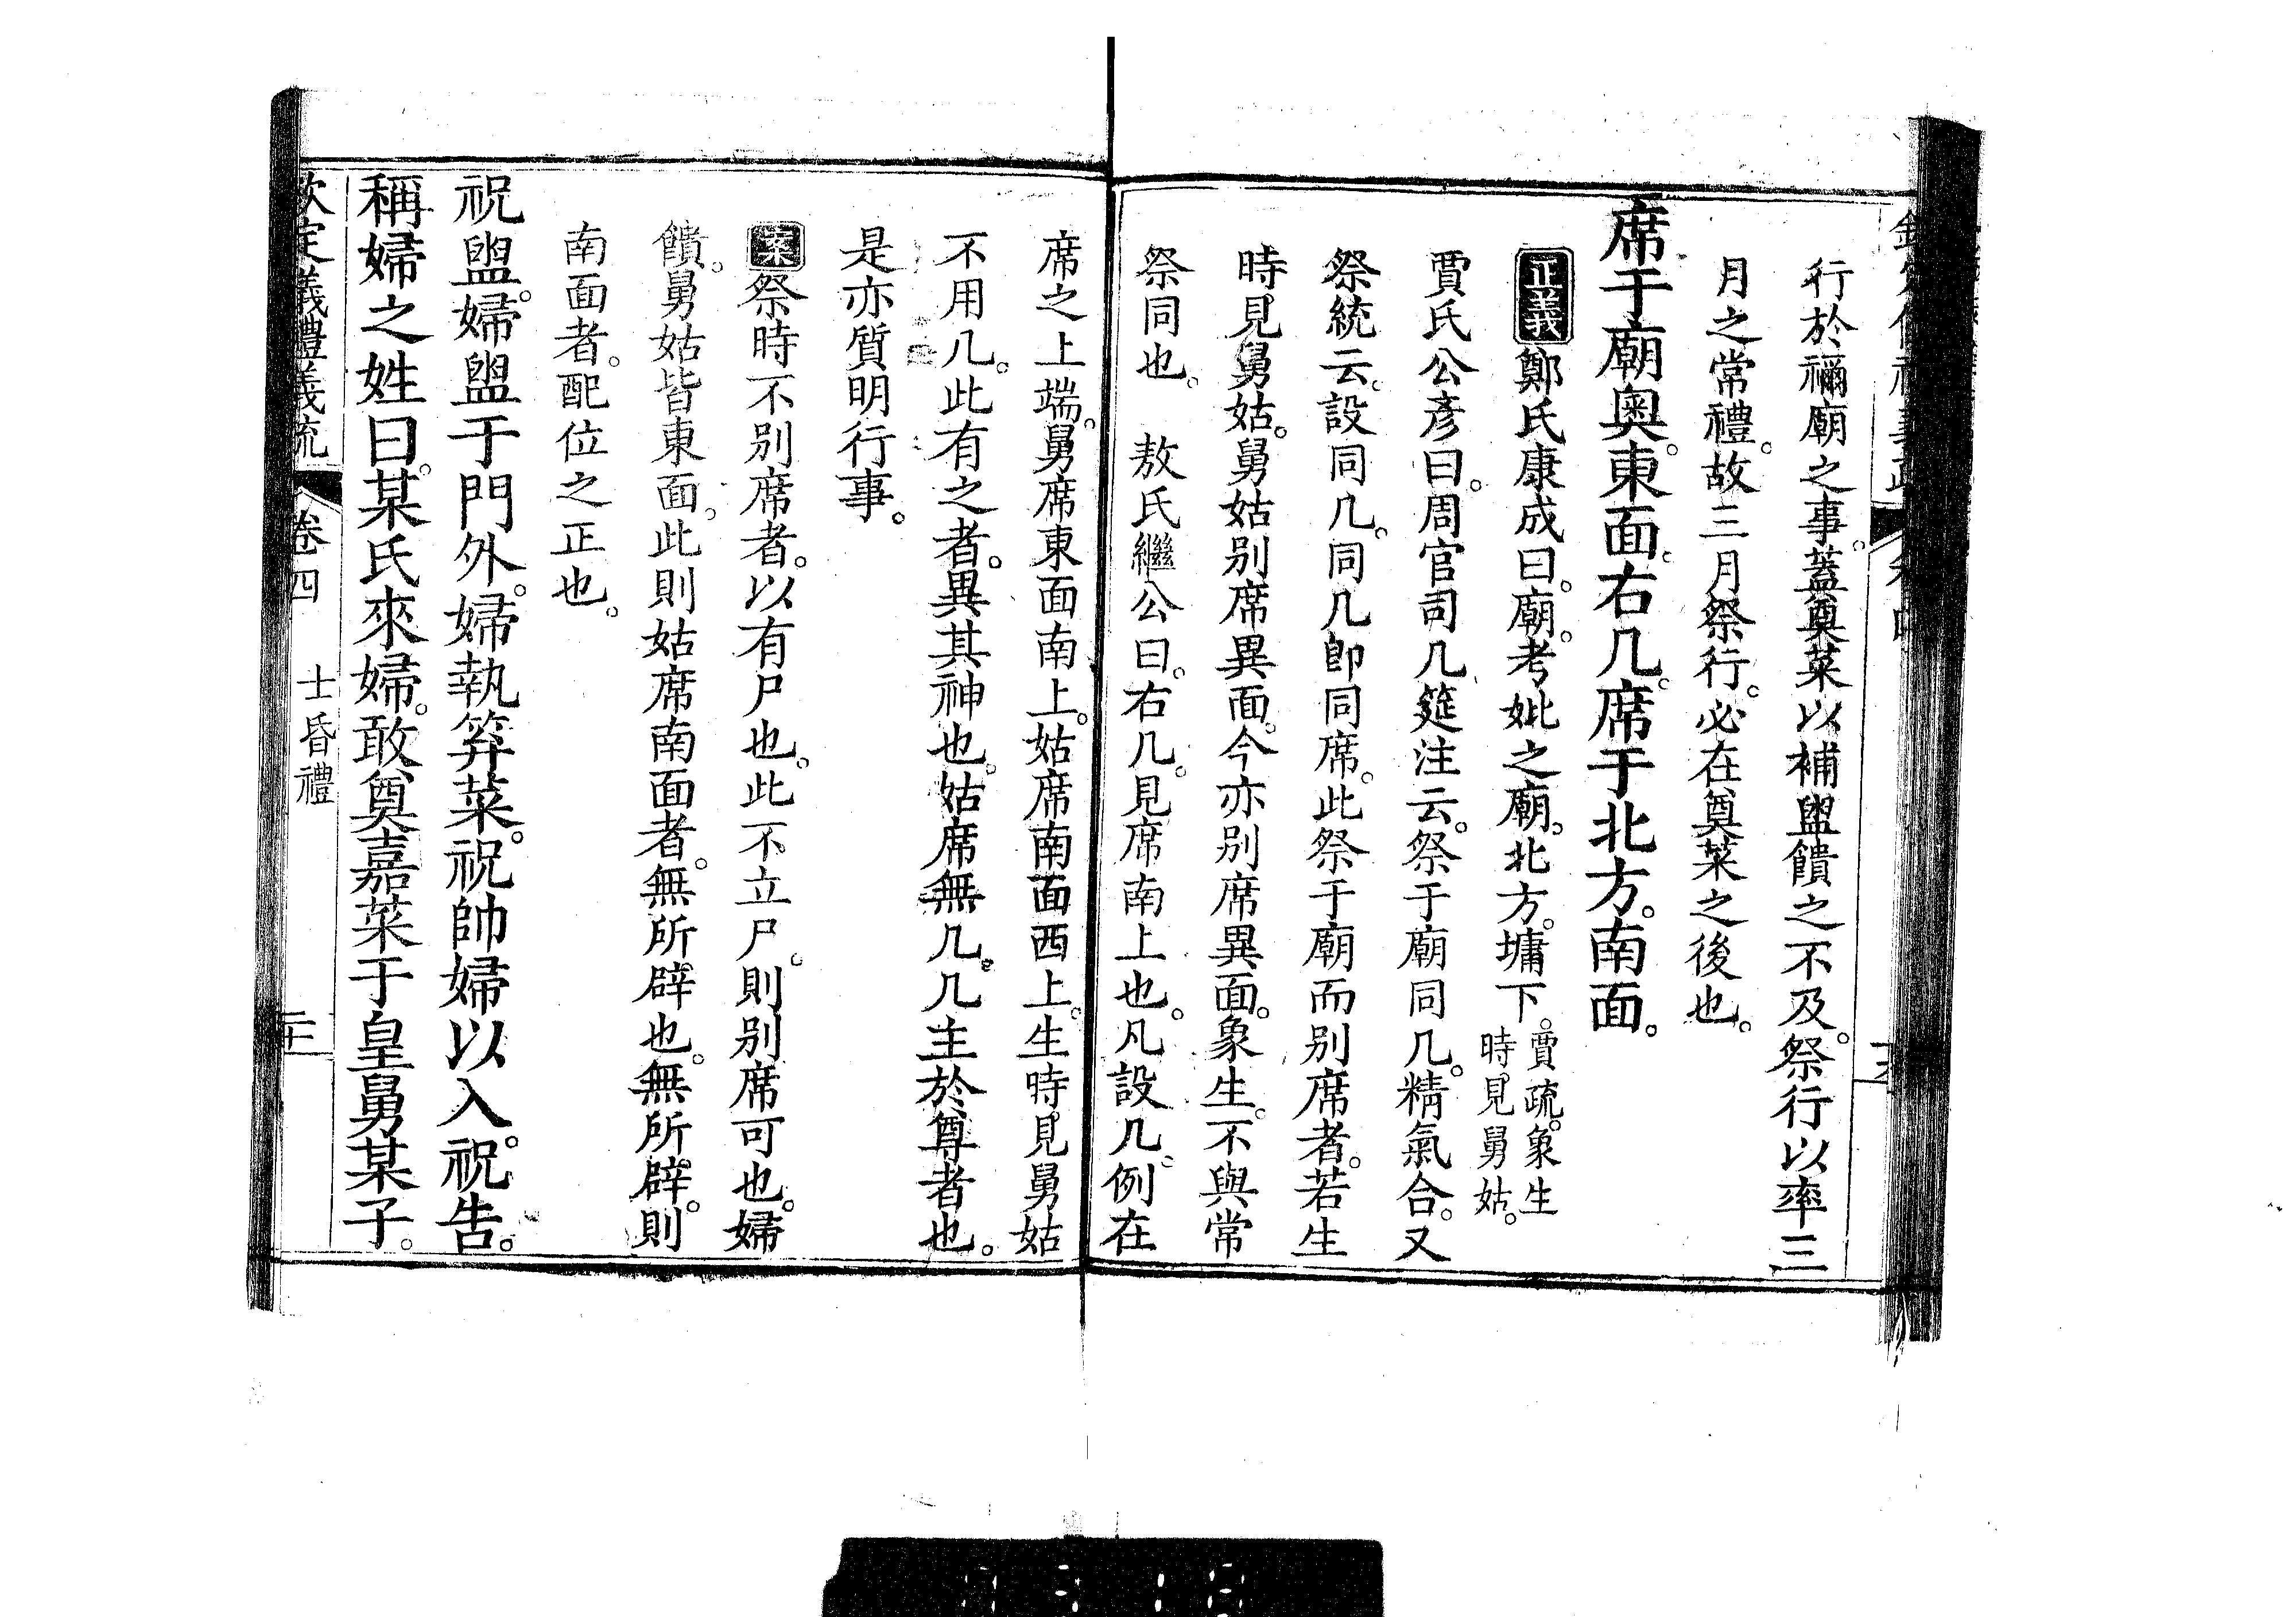 行於禰廟之事。蓋奠菜以補盥饋之不及。祭行以率三
月之常禮。故三月祭行。必在奠菜之後也。
席于廟奧。東面。右几。席于北方。南面。
正義鄭氏康成曰。廟。考妣之廟。北方。墉下。賈疏。象生
時。見舅姑。
賈氏公彥曰。周官司几筵注云。祭于廟同几。精氣合。又
祭統云。設同几。同几卽同席。此祭于廟而別席者。若生
時。見舅姑。舅姑別席異面。今亦別席異面。象生。不與常
祭同也。 敖氏繼公曰。右几。見席南上也。凡設几。例在
席之上端。舅席東面南上。姑席南面西上。生時。見舅姑
不用几。此有之者。異其神也。姑席無几。几主於尊者也。
是亦質明行事。
案祭時不別席者。以有尸也。此不立尸。則別席可也。婦
饋。舅姑皆東面。此則姑席南面者。無所辟也。無所辟。則
南面者。配位之正也。
祝盥。婦盥于門外。婦執笲菜。祝帥婦以入。祝告。
稱婦之姓曰。某氏來婦。敢奠嘉菜于皇舅某子。
欽定儀禮義疏 卷四 士昏禮